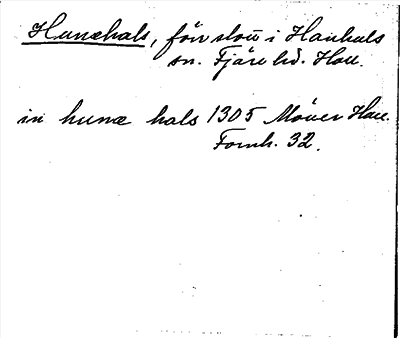 Hunehals, förr slott i Hanhals
sn. Fjäre hd. Hall.
in hunæ hals 1305 Möller Hall.
Fornh. 32.